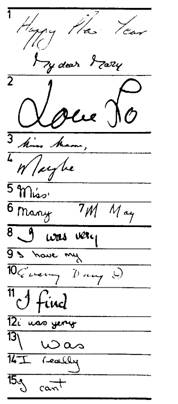 1
Happy Year
My dear Mary
2
Love
3
4
Maybe
5 Miss
6 Many 7 M May
8 I was very
9 I have my
10
11 I find
12 i was very
13 I was
14 I really
15 I can't